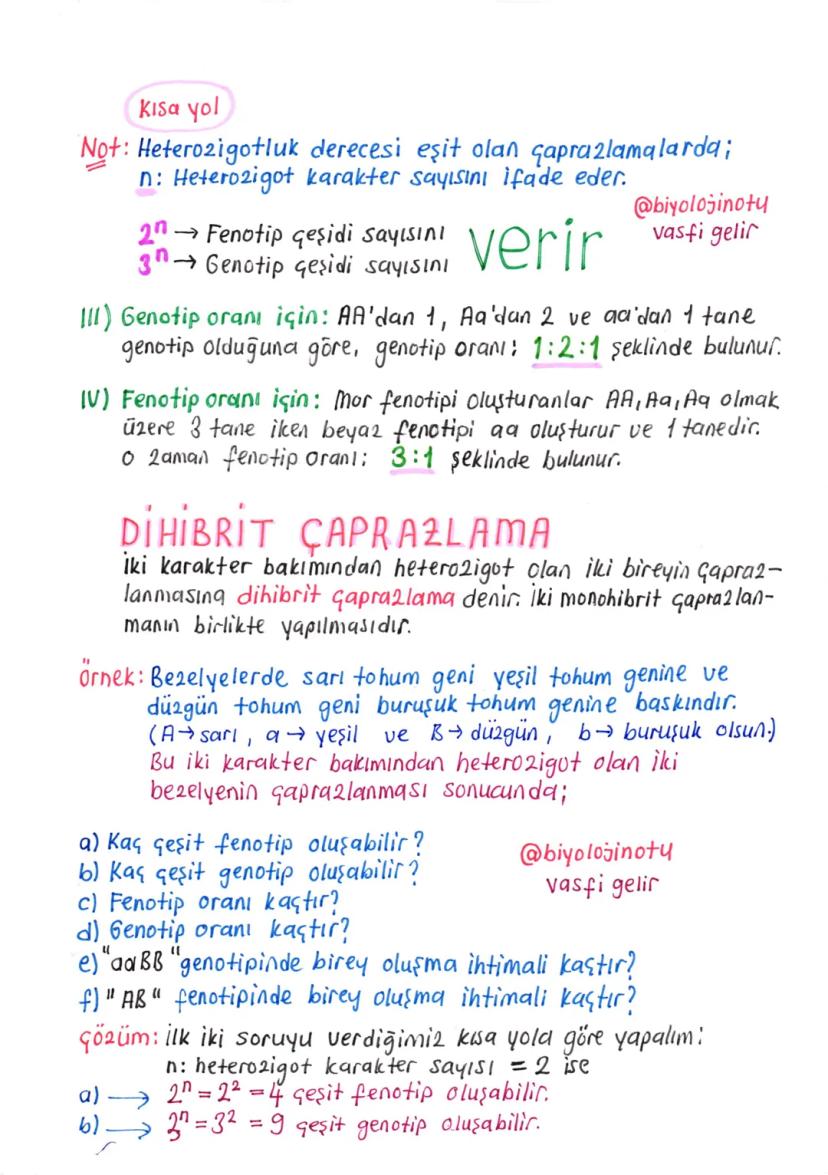 Kısa yol
Not: Heterozigotluk derecesi eşit olan çaprazlamalarda;
n: Heterozigot karakter sayısını ifade eder.
@biyolojinotu
vasfi gelir
2ⁿ → Fenotip çeşidi sayısını
3ⁿ → Genotip çeşidi sayısını
verir
III) Genotip oranı için: AA'dan 1, Aa'dan 2 ve aa'dan 1 tane
genotip olduğuna göre, genotip oranı: 1:2:1 şeklinde bulunur.
IV) Fenotip oranı için: Mor fenotipi oluşturanlar AA, Aa, Aa olmak
üzere 3 tane iken beyaz fenotipi aa oluşturur ve 1 tanedir.
O zaman fenotip oranı: 3:1 şeklinde bulunur.
DİHİBRİT ÇAPRAZLAMA
İki karakter bakımından heterozigot olan iki bireyin çapraz-
lanmasına dihibrit çaprazlama denir. İki monohibrit çaprazlan-
manın birlikte yapılmasıdır.
Örnek: Bezelyelerde sarı tohum geni yeşil tohum genine ve
düzgün tohum geni buruşuk tohum genine baskındır.
(A→ sarı, a → yeşil ve B→ düzgün, b→ buruşuk olsun.)
Bu iki karakter bakımından heterozigot olan iki
bezelyenin çaprazlanması sonucunda;
a) Kaç çeşit fenotip oluşabilir?
b) Kaç çeşit genotip oluşabilir?
c) Fenotip oranı kaçtır?
d) Genotip oranı kaçtır?
@biyolojinotu
vasfi gelir
e) "aaBB" genotipinde birey oluşma ihtimali kaçtır?
f) "AB" fenotipinde birey oluşma ihtimali kaçtır?
Çözüm: İlk iki soruyu verdiğimiz kısa yola göre yapalım:
n: heterozigot karakter sayısı = 2 ise
a) → 2ⁿ = 2² = 4 çeşit fenotip oluşabilir.
b) → 3ⁿ = 3² = 9 çeşit genotip oluşabilir.